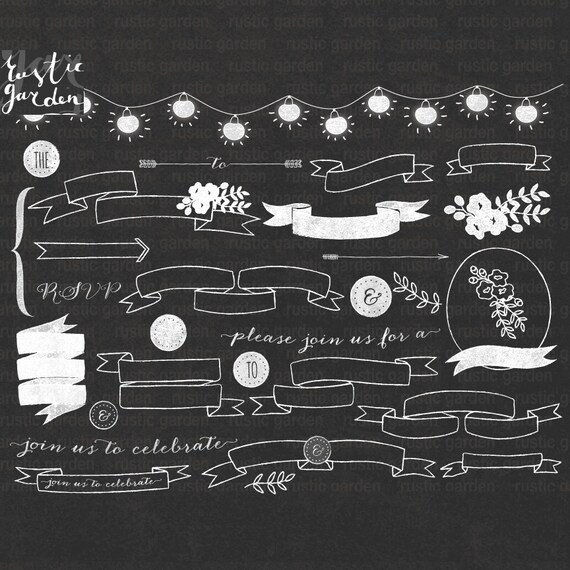 rustic
garden
THE
to
RSVP
&
please join us for a
TO
&
join us to celebrate
&
join us to celebrate